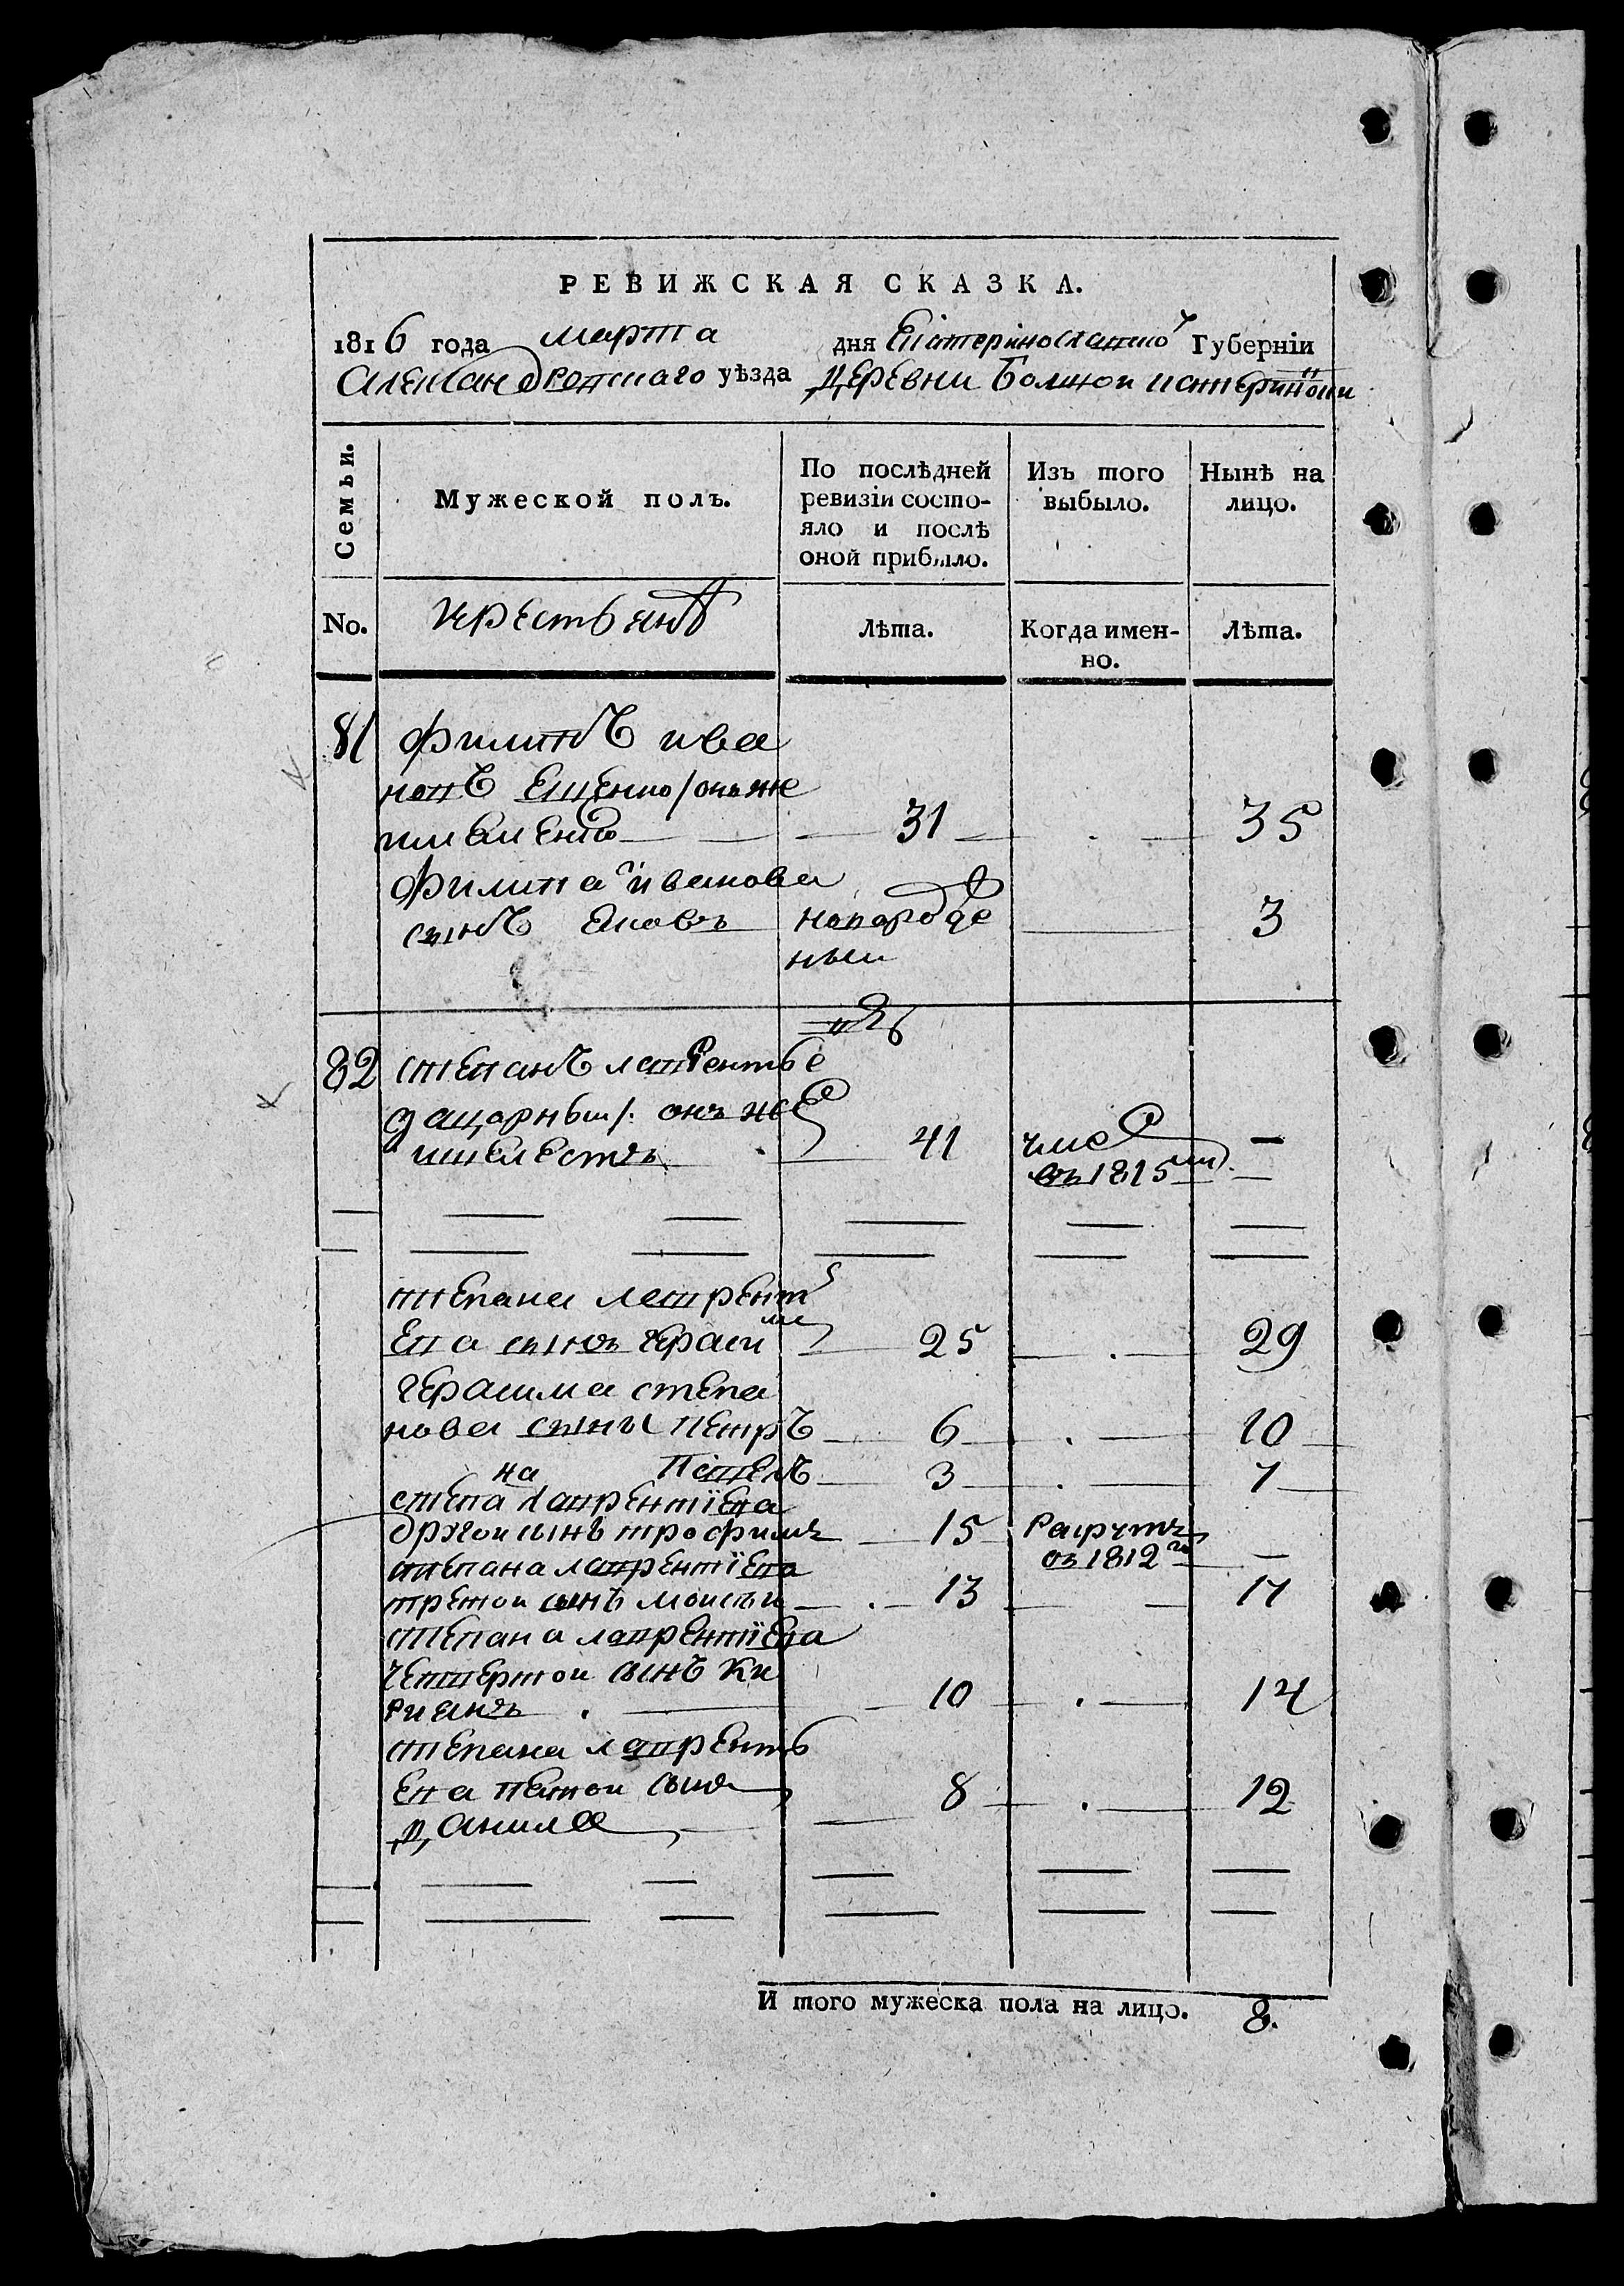 РЕВИЖСКАЯ СКАЗКА.
1816 года марта дня Екатеринославской Губерніи
Александровскаго уѣзда деревни Болшой катериновки
Семьи.
Мужеской полъ.
По послѣдней ревизіи состо-
яло и послѣ оной прибыло.
Изъ того выбыло.
Нынѣ на лицо.
No.
крестьянъ
Лѣта.
Когда имен-
но.
Лѣта.
81 Филипъ ива
новъ Ещенко / онъ же
31 35
Филипа иванова
сынъ Яковъ новорожде 3
ный
82 степанъ лаврентье
/: онъ же
шелестъ 41
въ 1815м
степана лаврентъ
ева сынъ Герасим 25 29
Герасима степа
нова сыны Петръ 6 10
Павелъ 3 7
степана Лаврентїева
другои сынъ трофимъ 15 Рекрутъ
въ 1812го
степана лаврентїева
третои сынъ моисѣи 13 17
степана лаврентїева
четвертои сынъ Ки
риянъ 10 14
степана лавренть
ева пятои сынъ 8 12
Данила
И того мужеска пола на лицо. 8.